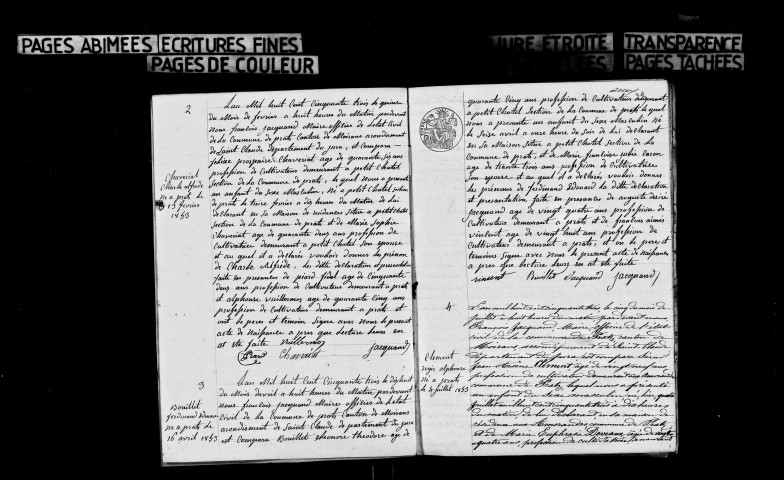 PAGES ABIMEES ECRITURES FINES
PAGES DE COULEUR
URE ETROITE TRANSPARENCE
LÉES PAGES TACHÉES
2
Lan Mil huit Cent Cinquante trois le quinze
du Mois de fevrier a huit heures du Matin pardevant
Nous françois jacquand Maire officier de Letat Civil
de La Commune de prats Canton de Moirans arondisement
de Saint Claude departement du jura, est Comparu
prospaire Chaveriat age de quarante six ans
profession de Cultivateur demeurant a petit Chatel
Section de La Commune de prats, le quel Nous a presenté
un anfant du Sexe Masculin, Né a petit Chatel Section
de prats le treize fevrier a dix heures du Matin de Lui
declarant en Sa Maison de residence sitee a petit chatel
Section de La Commune de prats et de Marie Sophie
Chaveriat age de quarante deux ans profession de
Cultivatrice demeurant a petit Chatel Son epouse
et au quel il a declarés vouloir donner les prenoms
de Charle Alfrède, les ditte declaration et presentation
faite en presances de piard fidel age de Cinquante
deux ans profession de Cultivateur demeurant a prats
et alphonse vuillermoz age de quarante Cinq ans
profession de Cultivateur demeurant a prats et
ont le pere et temoin Signe avec Nous le present
acte de Naissance a pres que Lecture heurs en
at ete faite Vuillermoz
piard Chaveriat jacquand
Chaveriat
Charle alfrède
Né a prats le
13 fevrier
1853
3
Bouillet
ferdinand Edouard
Né a prats le
16 avril 1853
Lan Mil huit Cent Cinquante trois le dixhuit
du Mois davril a huit heures du Matin pardevant
Nous francois jacquand Maire officier de Letat
Civil de La Commune de prats Canton de Moirans
arondisement de Saint Claude departement du jura
est Comparu Bouillet theodore age de
quarante Cinq ans profession de Cultivateur demeurant
a petit Chatel Section de La Commune de prats le quel
Nous a presenté un anfant du Sexe Masculin Né
le Seize avril a onze heure du Soir de Lui declarant
en Sa Maison Sitee a petit Chatel Section de La
Commune de prats, et de Marie francoise
age de trente six ans profession de Cultivatrice
Son epouse et au quel il a declarés vouloir donner
les prenoms de ferdinand Edouard les ditte declaration
et presentation faite en presances de auguste desiré
jacquand age de vingt quatre ans profession de
Cultivateur demeurant a prats et de francois
vincent age de vingt huit ans profession de
Cultivateur demeurant a prats, et on le pere et
temoins Signe avec Nous le present acte de Naissance
a pres que Lecture heurs en at ete faite
vincent Bouillet Jacquand jacquand
4
Clement
regis alphonse
Né a prats
le 4 juillet 1853
L'an mil huit cent cinquante trois, le cinq du mois de
juillet à huit heures du matin, par devant nous
François Jacquand, Maire, officier de l'état
civil de la commune de Prats, canton de
Moirans, arrondissement de Saint Claude
département du jura, est comparu
Jean Clément, âgé de
profession de cultivateur, demeurant
commune de Prats, lequel nous a présenté
un enfant du sexe masculin, né le quatre
juillet
du matin, de lui déclarant en sa maison de
commune de Prats
et de Marie Euphrasie
quatre ans, profession de cultivatrice demeurant